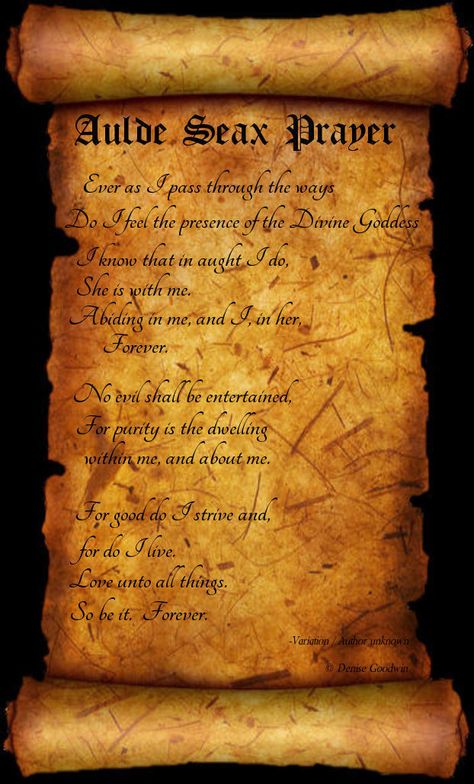 Aulde Seax Prayer
Ever as I pass through the ways
Do I feel the presence of the Divine Goddess
I know that in aught I do,
She is with me.
Abiding in me, and I, in her,
Forever.
No evil shall be entertained,
For purity is the dwelling
within me, and about me.
For good do I strive and,
for do I live.
Love unto all things.
So be it. Forever.
-Variation / Author unknown
© Denise Goodwin